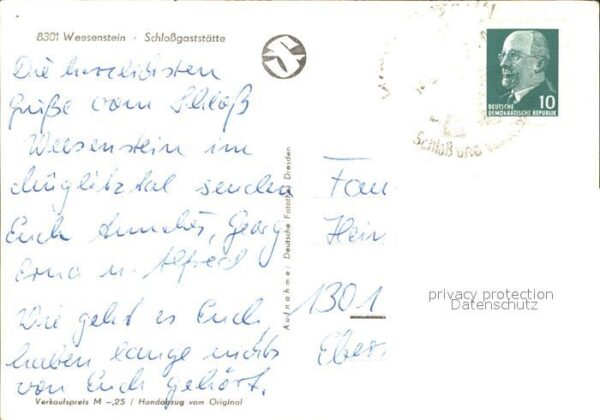 8301 Weesenstein - Schloßgaststätte
Die herzlichsten
Grüße vom Schloß
Weesenstein im
Müglitztal senden
Euch Annelies, Georg
Erna u. Alfred
Wie geht es Euch,
haben lange nichts
von Euch gehört.
Verkaufspreis M -,25 / Handabzug vom Original
Aufnahme: Deutsche Fotothek Dresden
10
DEUTSCHE
DEMOKRATISCHE REPUBLIK
Schloß und
Fam
Hein
1301
Ebers
privacy protection
Datenschutz